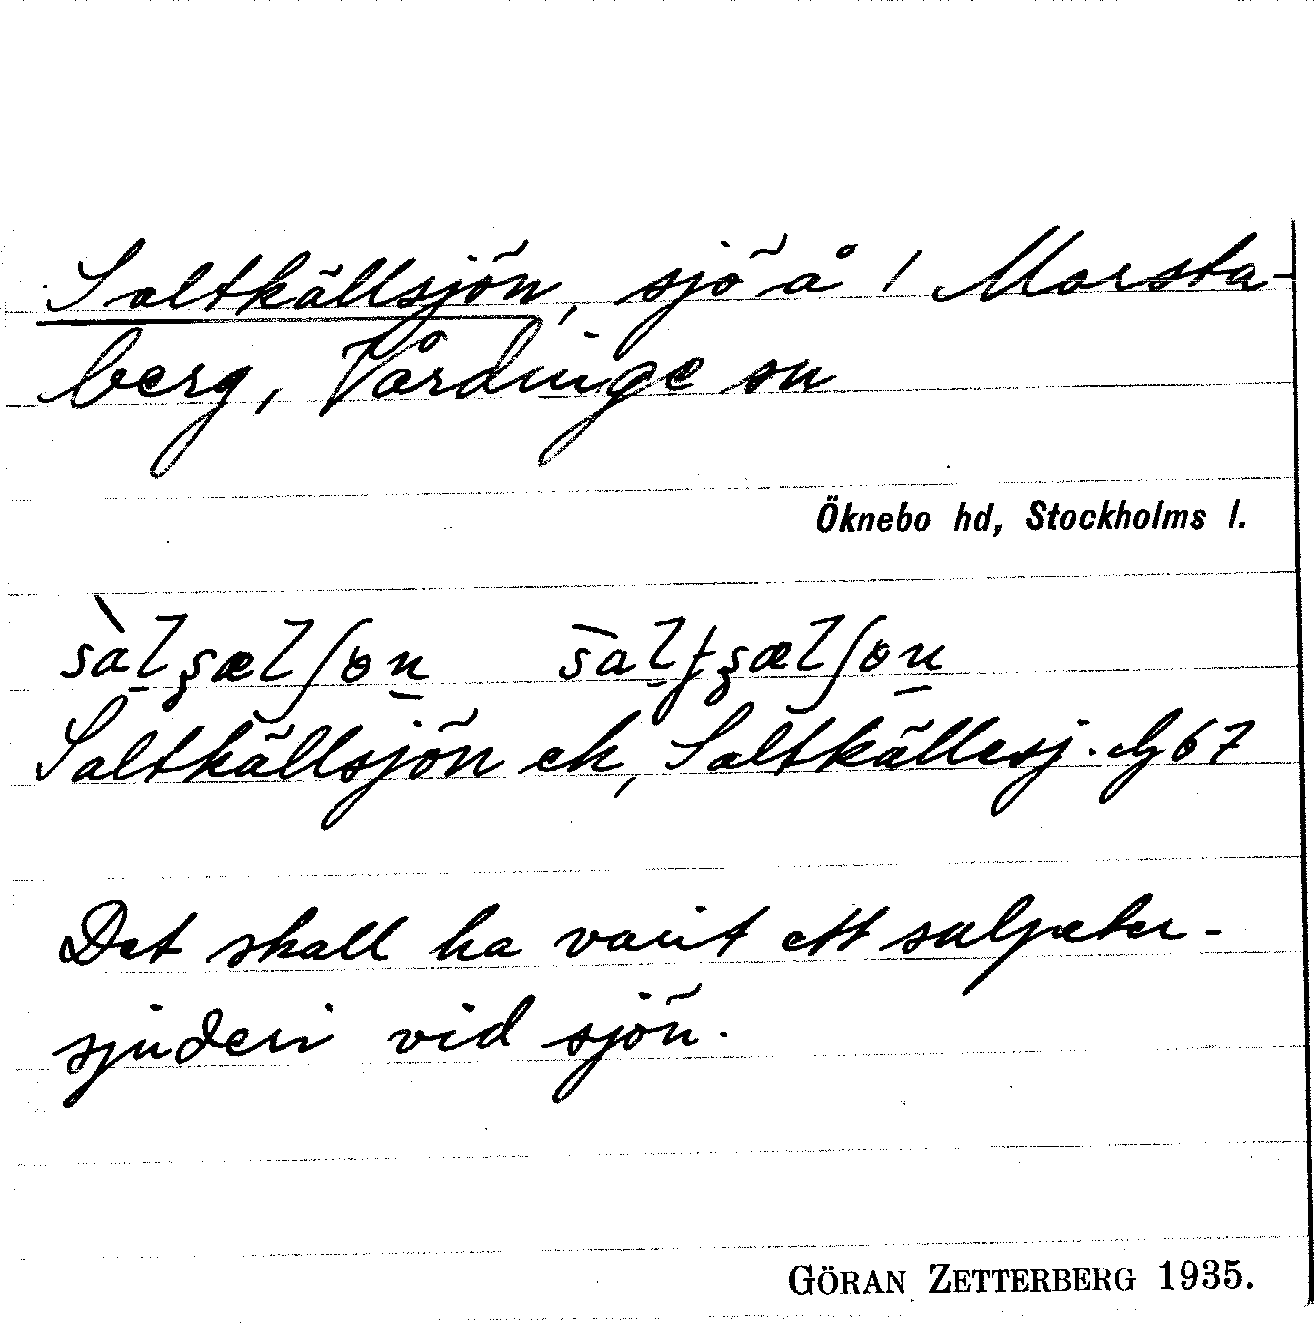 Saltkällsjön, sjö å 1 Morsta-
berg, Vårdinge sn
Öknebo hd, Stockholms l.
Saltkällsjön ek, Saltkällesj. Gg 67
Det skall ha varit ett salpeter-
sjuderi vid sjön.
GÖRAN ZETTERBERG 1935.